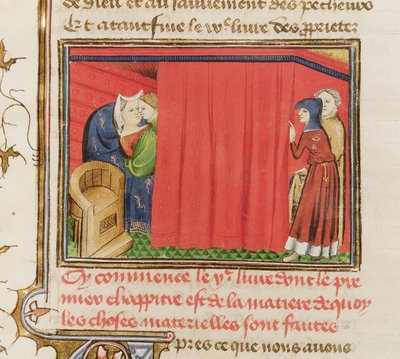 de dieu et au sauuement des pecheurs
Et atant fine le ix͛ liure des ꝓprietez
Cy commence le x͛ liure dont le pre
mier chappitre est de la matiere de quoy
les choses materielles sont faites
Apres ce que nous auons